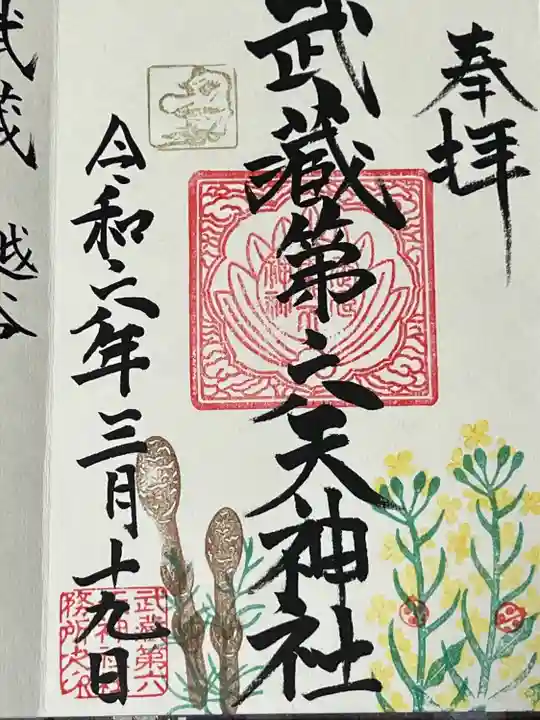 奉拝
武蔵第六天神社
令和六年三月十九日
武蔵第六
天神社社
務所之印
武蔵
越谷